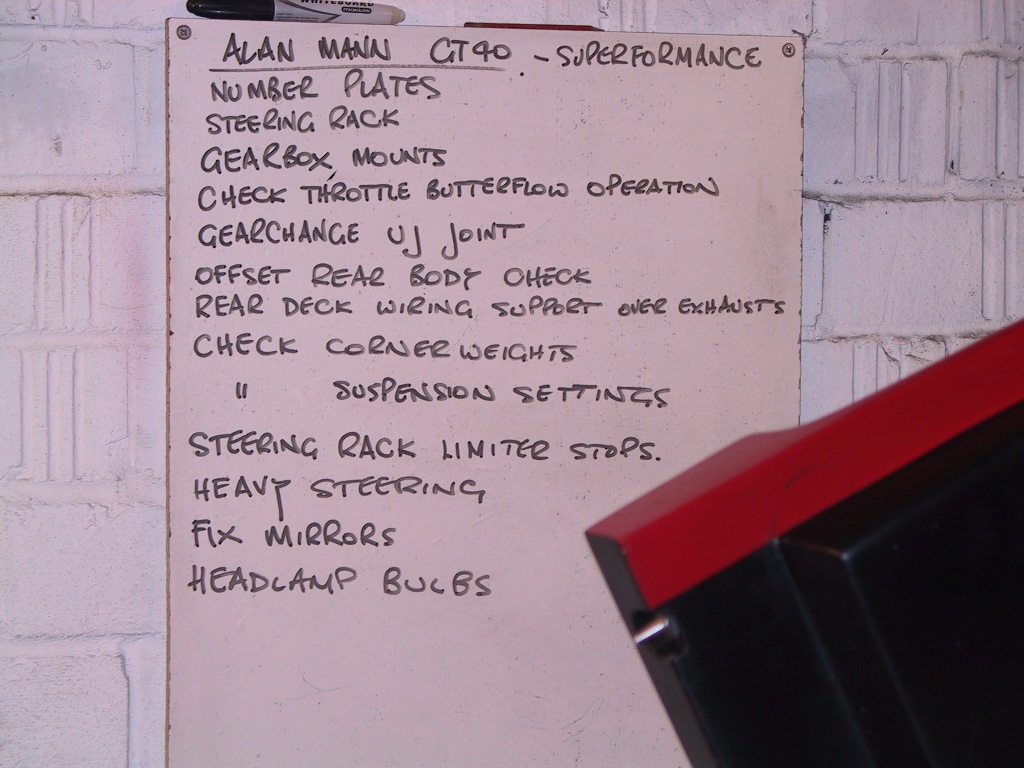 WHITEBOARD
ALAN MANN GT40 - SUPERFORMANCE
NUMBER PLATES
STEERING RACK
GEARBOX MOUNTS
CHECK THROTTLE BUTTERFLOW OPERATION
GEARCHANGE UJ JOINT
OFFSET REAR BODY CHECK
REAR DECK WIRING SUPPORT OVER EXHAUSTS
CHECK CORNER WEIGHTS
" SUSPENSION SETTINGS
STEERING RACK LIMITER STOPS.
HEAVY STEERING
FIX MIRRORS
HEADLAMP BULBS